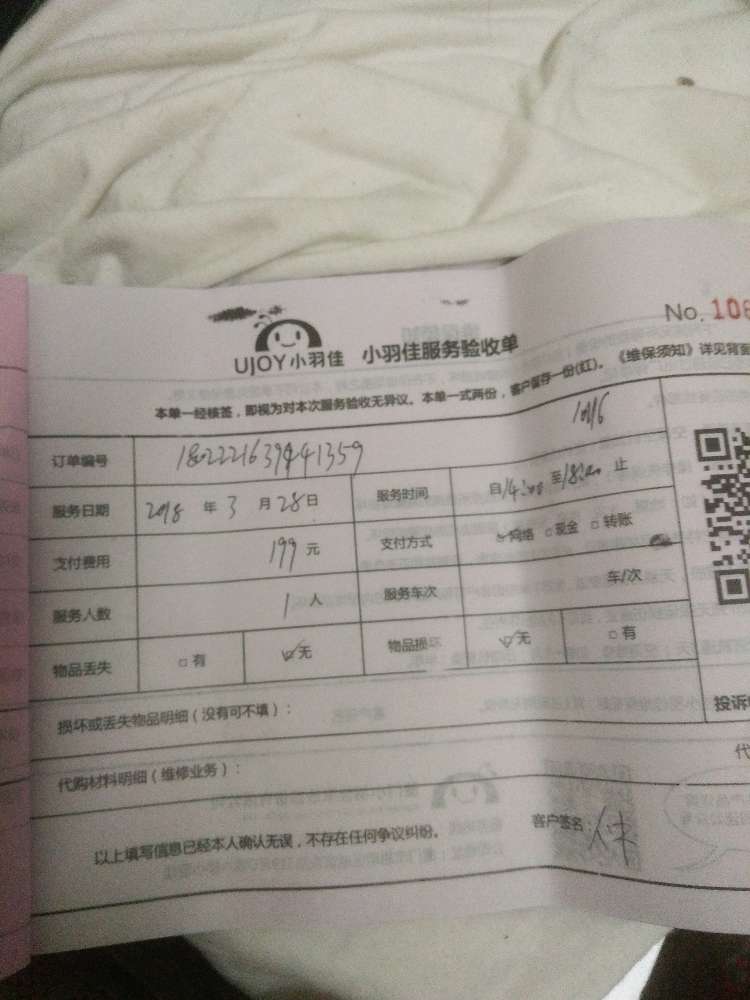 No. 106
UJOY小羽佳 小羽佳服务验收单
本单一经核签，即视为对本次服务验收无异议。本单一式两份，客户留存一份(红)。《维保须知》详见背面
订单编号
服务日期 2018 年 3 月 28 日 服务时间 自14:00 至18:00 止
支付费用 199 元 支付方式 网络 □现金 □转账
服务人数 1 人 服务车次 车/次
物品丢失 □有 ☑无 物品损坏 ☑无 □有
损坏或丢失物品明细（没有可不填）：
投诉
代购材料明细（维修业务）：
代
以上填写信息已经本人确认无误，不存在任何争议纠纷。 客户签名：